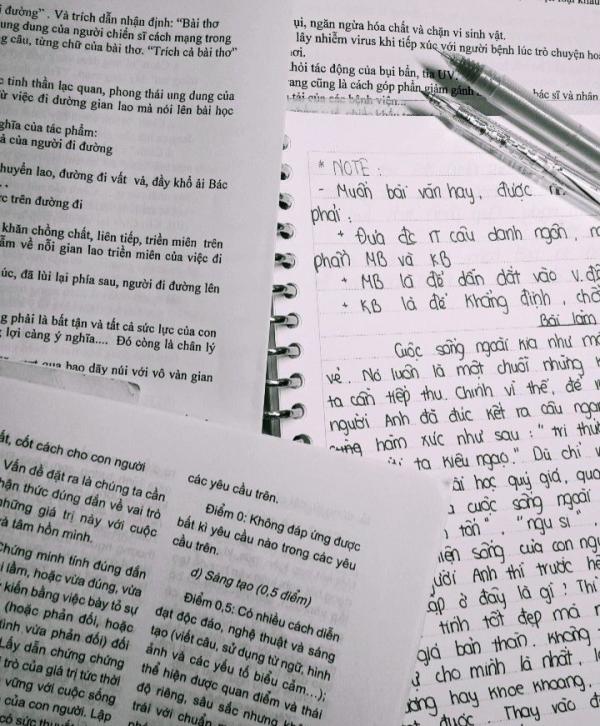 đi đường". Và trích dẫn nhận định: "Bài thơ
ung dung của người chiến sĩ cách mạng trong
g câu, từng chữ của bài thơ. "Trích cả bài thơ"
tinh thần lạc quan, phong thái ung dung của
ừ việc đi đường gian lao mà nói lên bài học
nghĩa của tác phẩm:
ả của người đi đường
huyển lao, đường đi vất vả, đầy khổ ải Bác
c trên đường đi
khăn chồng chất, liên tiếp, triền miên trên
ẫm về nỗi gian lao triền miên của việc đi
úc, đã lùi lại phía sau, người đi đường lên
g phải là bất tận và tất cả sức lực của con
lợi càng ý nghĩa.... Đó cũng là chân lý
qua bao dãy núi với vô vàn gian
ụi, ngăn ngừa hóa chất và chặn vi sinh vật.
lây nhiễm virus khi tiếp xúc với người bệnh lúc trò chuyện
ơi.
khỏi tác động của bụi bẩn, tia UV.
rang cũng là cách góp phần giảm gánh bác sĩ và nhân
tải của các bệnh viện...
* NOTE :
- Muốn bài văn hay, được
phải :
+ Đưa đc 1 câu danh ngôn,
phần MB và KB
+ MB là để dẫn dắt vào v.đề
+ KB là để khẳng định,
Bài làm
Cuộc sống ngoài kia như
vẻ. Nó luôn là một chuỗi những
ta cần tiếp thu. Chính vì thế, để
người Anh đã đúc kết ra câu
hàm xúc như sau : " tri
ta kiêu ngạo." Dù chỉ
bài học quý giá, qua
cuộc sống ngoài
tốn" . "ngu si" .
sống của con
người Anh thì trước
gặp ở đây là gì ? Thì
tính tốt đẹp mà
giá bản thân. Không
cho mình là nhất,
hay khoe khoang.
được. Thay vào
ất, cốt cách cho con người
Vấn đề đặt ra là chúng ta cần
nhận thức đúng đắn về vai trò
những giá trị này với cuộc
và tâm hồn mình.
Chứng minh tính đúng đắn
i lầm, hoặc vừa đúng, vừa
kiến bằng việc bày tỏ sự
(hoặc phản đối, hoặc
tình vừa phản đối) đối
Lấy dẫn chứng chứng
trò của giá trị tức thời
vững với cuộc sống
của con người. Lập
có sức
các yêu cầu trên.
Điểm 0: Không đáp ứng được
bất kì yêu cầu nào trong các yêu
cầu trên.
d) Sáng tạo (0,5 điểm)
Điểm 0,5: Có nhiều cách diễn
đạt độc đáo, nghệ thuật và sáng
tạo (viết câu, sử dụng từ ngữ, hình
ảnh và các yếu tố biểu cảm...);
thể hiện được quan điểm và thái
độ riêng, sâu sắc nhưng không
trái với chuẩn